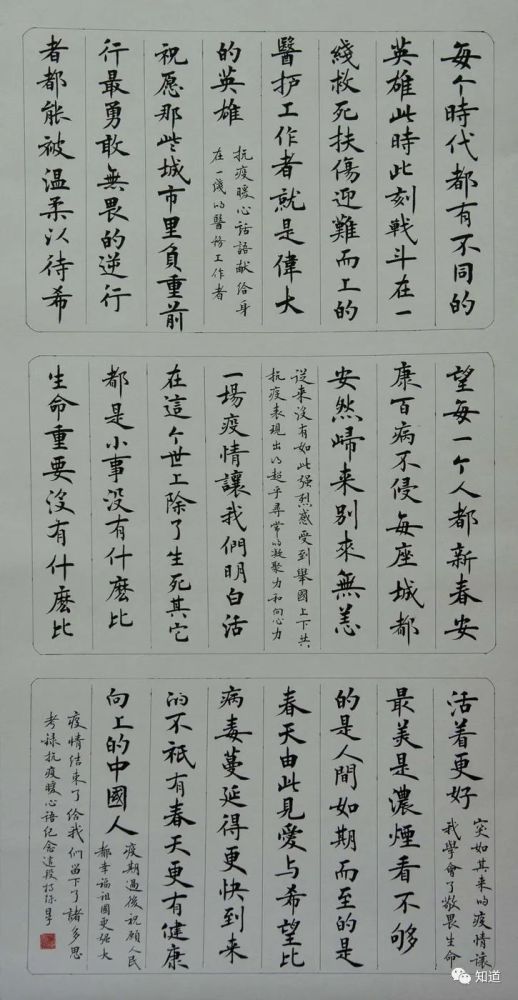 每个時代都有不同的
英雄此時此刻戰斗在一
綫救死扶傷迎難而上的
醫护工作者就是偉大
的英雄
抗疫暖心話語献給身
在一綫的醫務工作者
祝愿那些城市里負重前
行最勇敢無畏的逆行
者都能被温柔以待希
望每一个人都新春安
康百病不侵每座城都
安然歸来别來無恙
從来没有如此强烈感受到舉國上下共
抗疫表現出的超乎尋常的凝聚力和向心力
一場疫情讓我們明白活
在這个世上除了生死其它
都是小事没有什麽比
生命重要没有什麽比
活着更好
突如其来的疫情讓
我學會了敬畏生命
最美是濃煙看不够
的是人間如期而至的是
春天由此見愛与希望比
病毒蔓延得更快到来
的不祇有春天更有健康
向上的中國人
疫期過後祝願人民
都幸福祖國更强大
疫情结束了给我們留下了諸多思
考録抗疫暖心语纪念這段
知道